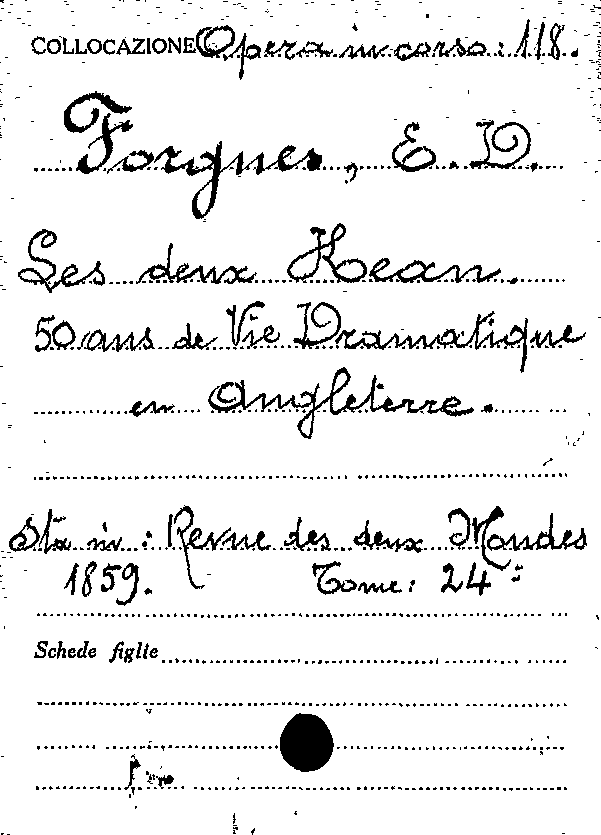 COLLOCAZIONE Opera in corso: 118.
Forgues, E. D.
Les deux Kean.
50 ans de Vie Dramatique
en Angleterre.
Sta in: Revue des deux Mondes
1859. Tome: 24
Schede figlie